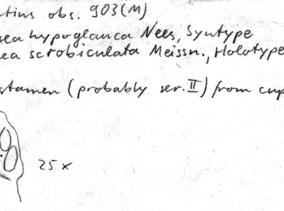 tius obs. 903 (M)
ea hypoglauca Nees, Syntype
ea scrobiculata Meissn., Holotype
stamen (probably ser. II) from cup
25 x